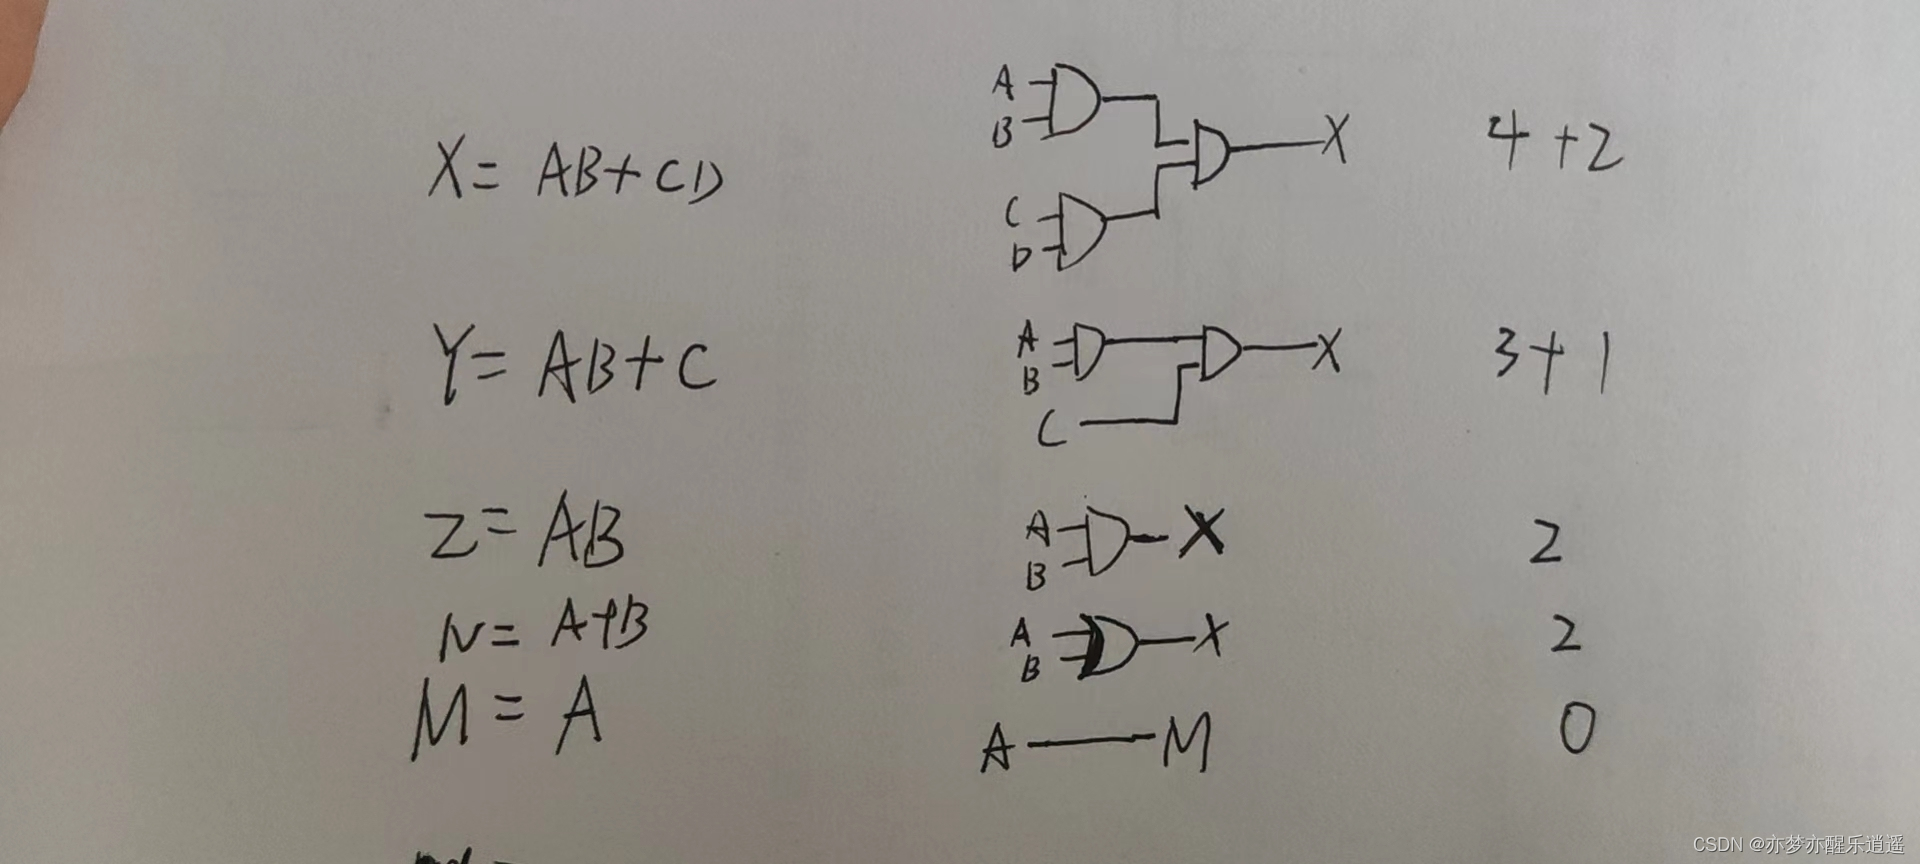 X = AB + CD
A
B
C
D
X
4 + 2
Y = AB + C
A
B
C
X
3 + 1
Z = AB
A
B
X
2
N = A+B
A
B
X
2
M = A
A
M
0
CSDN @亦梦亦醒乐逍遥